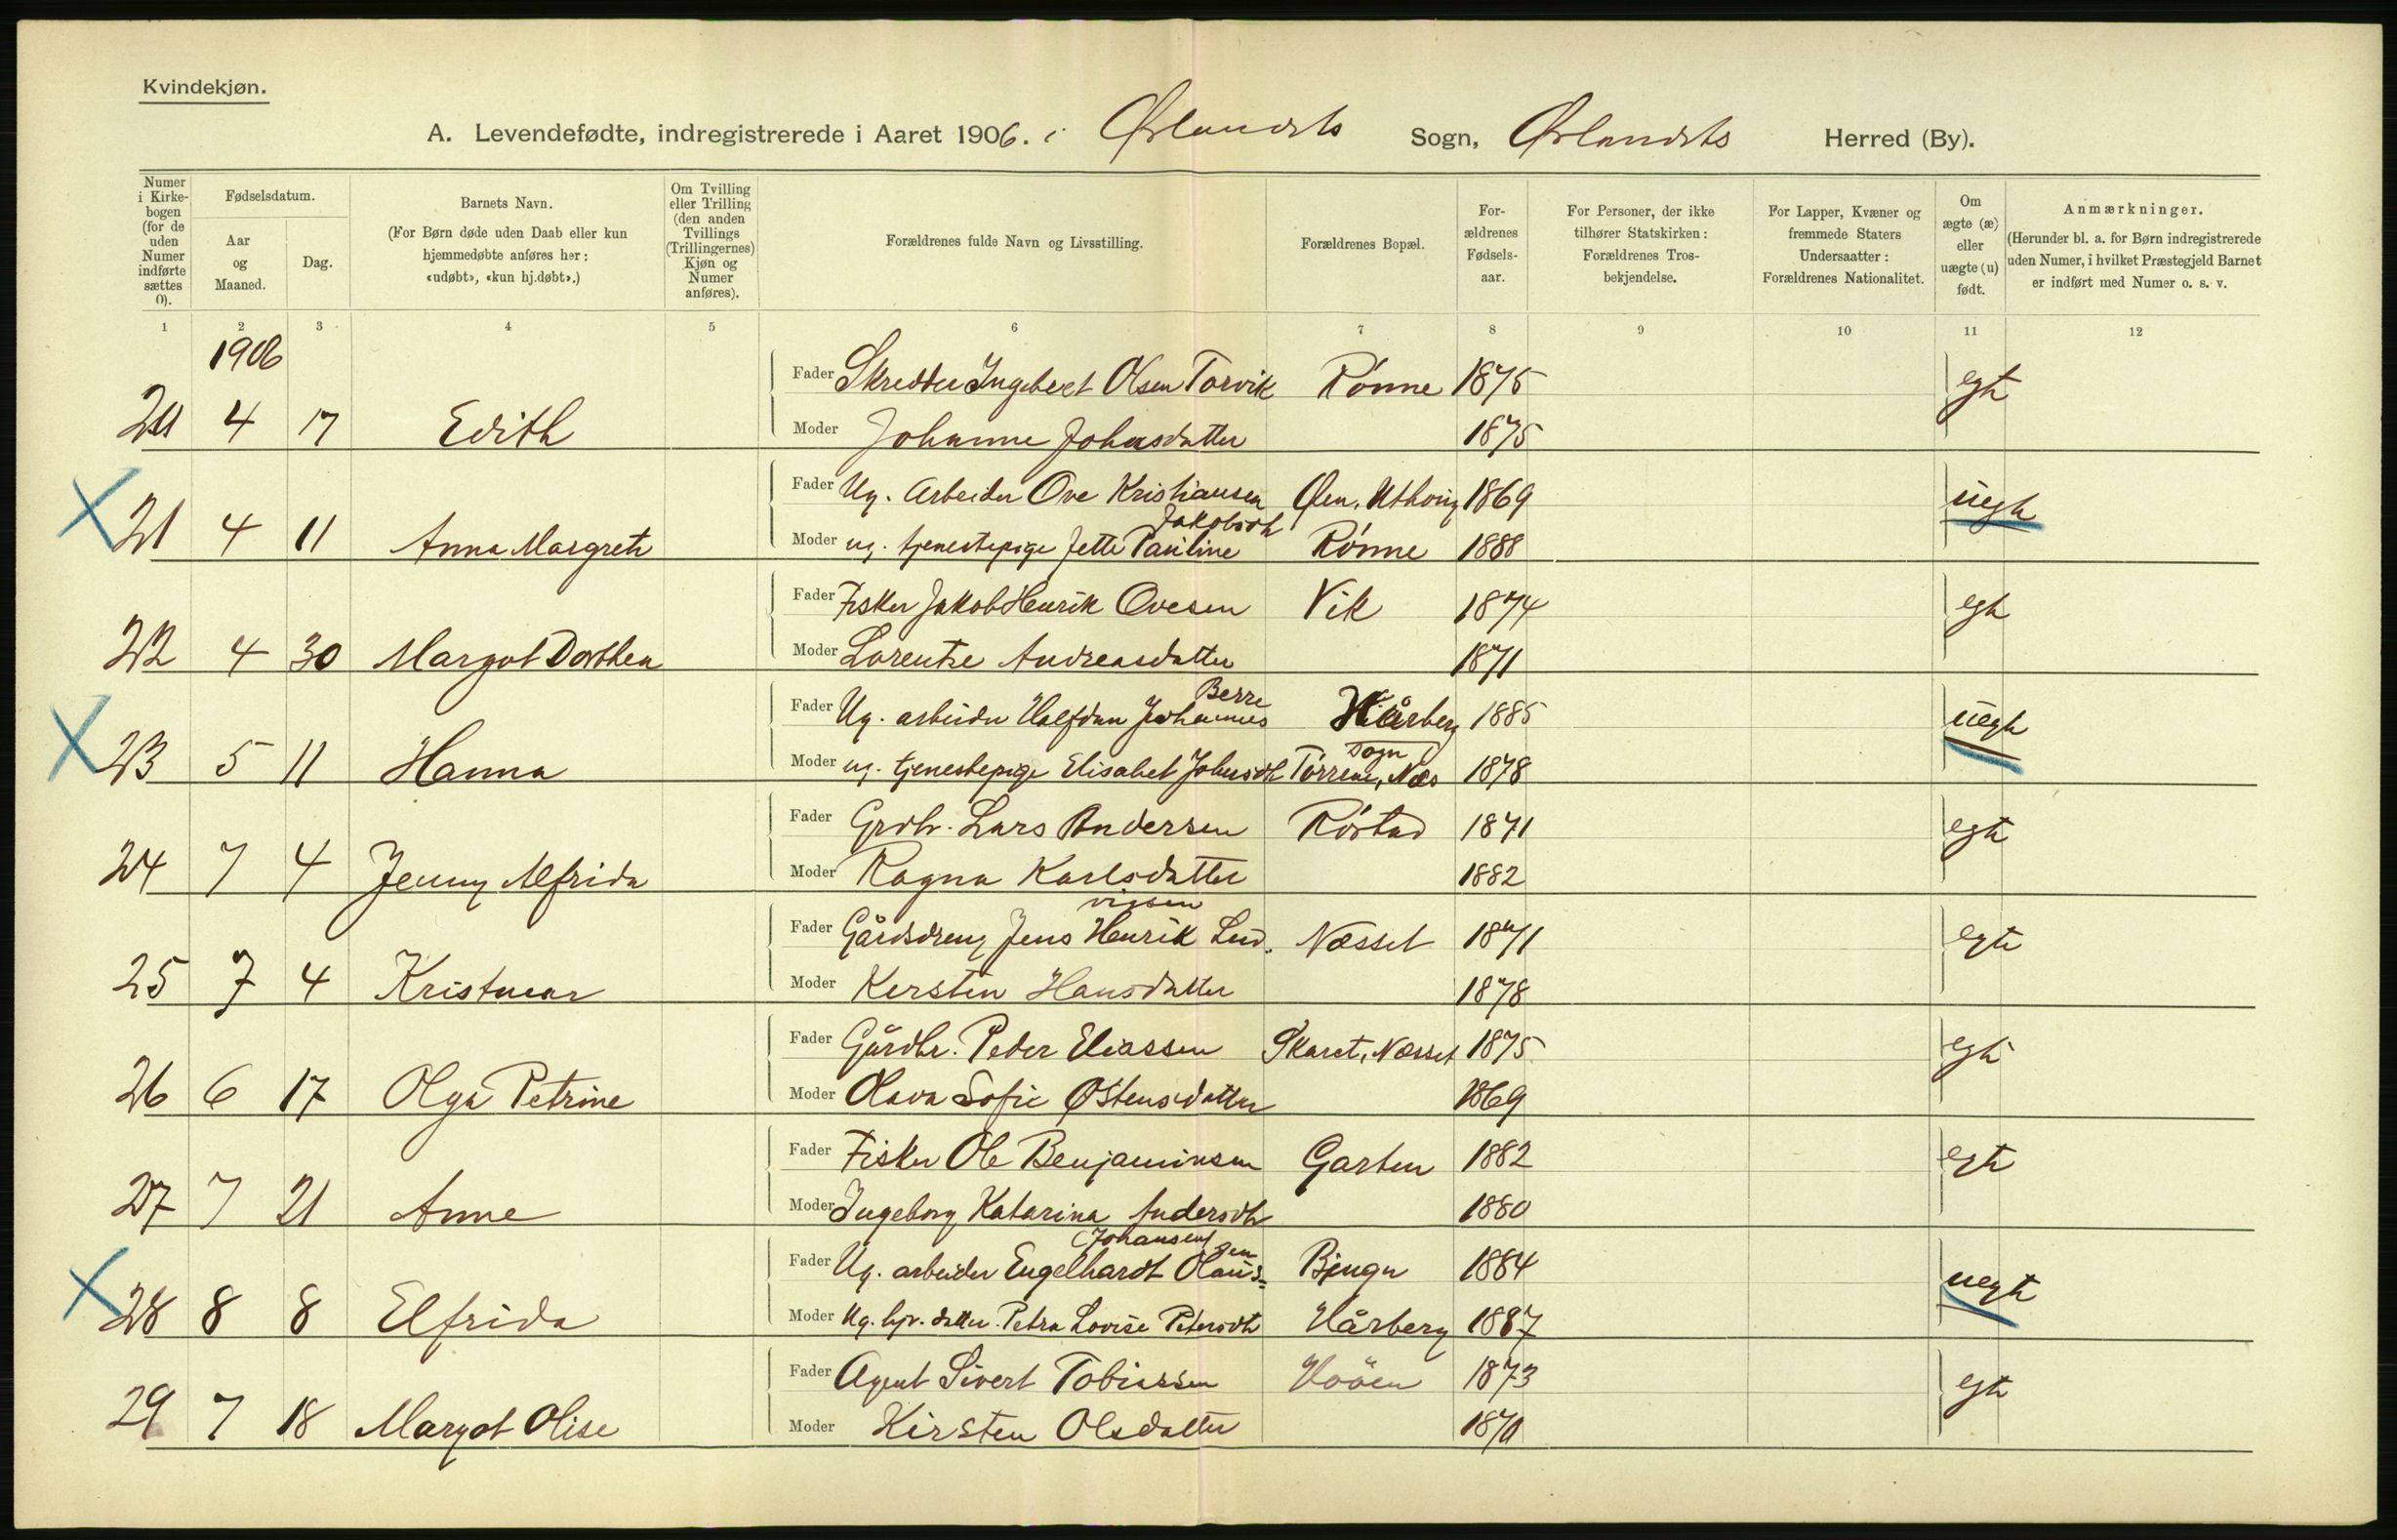 Kvindekjøn.
A. Levendefødte, indregistrerede i Aaret 1906. i Ørlandets Sogn, Ørlandets Herred (By).
Numer i Kirkebogen (for de uden Numer indførte sættes 0).
Fødselsdatum.
Aar og Maaned.
Dag.
Barnets Navn.
(For Børn døde uden Daab eller kun hjemmedøbte anføres her: «udøbt», «kun hj.døbt».)
Om Tvilling eller Trilling (den anden Tvillings (Trillingernes) Kjøn og Numer anføres).
Forældrenes fulde Navn og Livsstilling.
Forældrenes Bopæl.
Forældrenes Fødselsaar.
For Personer, der ikke tilhører Statskirken: Forældrenes Trosbekjendelse.
For Lapper, Kvæner og fremmede Staters Undersaatter: Forældrenes Nationalitet.
Om ægte (æ) eller uægte (u) født.
Anmærkninger.
(Herunder bl. a. for Børn indregistrerede uden Numer, i hvilket Præstegjeld Barnet er indført med Numer o. s. v.
1 2 3 4 5 6 7 8 9 10 11 12
1906
Fader Skredder Ingebret Olsen Torvik Rönne 1875 egte
20 4 17 Edith Moder Johanne Johnsdatter 1875
Fader Ug. Arbeider Ove Kristiansen Øen, Uthaug 1869 uegte
Jakobsdt
21 4 11 Anna Margrete Moder ug. tjenestepige Jette Pauline Rönne 1888
Fader Fisker Jakob Henrik Ovesen Vik 1874 egte
22 4 30 Margot Dorthea Moder Lorentze Andreasdatter 1871
Berre
Fader Ug. arbeider Halfdan Johannes Hårberg 1885 uegte
Sogn
23 5 11 Hanna Moder ug. tjenestepige Elisabet Johnsdt Törrem, Næs 1878
Fader Grdbr. Lars Andersen Röstad 1871 egte
24 7 4 Jenny Alfrida Moder Ragna Karlsdatter 1882
vigsen
Fader Gårdsdreng Jens Henrik Lud. Næsset 1871 egte
25 7 4 Kristmar Moder Kersten Hansdatter 1878
Fader Gårdbr. Peder Eliassen Skaret, Næsset 1875 egte
26 6 17 Olga Petrine Moder Olava Sofie Østensdatter 1869
Fader Fisker Ole Benjaminsen Garten 1882 egte
27 7 21 Anne Moder Ingeborg Katarina Andersdt 1880
(Johansen) sen
Fader Ug. arbeider Engelhardt Olaus= Bjugn 1884 uegte
28 8 8 Elfrida Moder Ug. hjv. datter Petra Lovise Petersdt Hårberg 1887
Fader Agent Sivert Tobiassen Hoöen 1873 egte
29 7 18 Margot Olise Moder Kirsten Olsdatter 1870